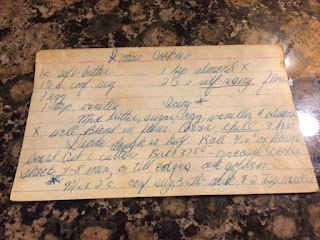 Xmas Cookies
1c soft butter 1 tsp almond X
1½ c conf. sug 2½ c self-rising flour
1 egg
1 tsp vanilla Icing *
Mix butter, sugar, egg, vanilla & almond
X well. Blend in flour. Cover, chill 2 hrs.
Divide dough in half. Roll 3/16" on floured
board. Cut c cutter. Bake 375° greased cookie
sheet, 7-8 min, or till edges are golden.
* Mix 2 c. conf sug, milk, & 2 tsp vanilla